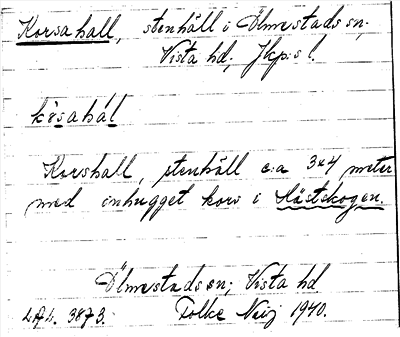 Korsahall, stenhäll i Ölmestads sn;
Vista hd; Jkp:s l.
kårsahál
Korshall, stenhäll c:a 3x4 meter
med inhugget kors i Hästskogen.
Ölmestads sn; Vista hd
3873. Folke Neij 1940.